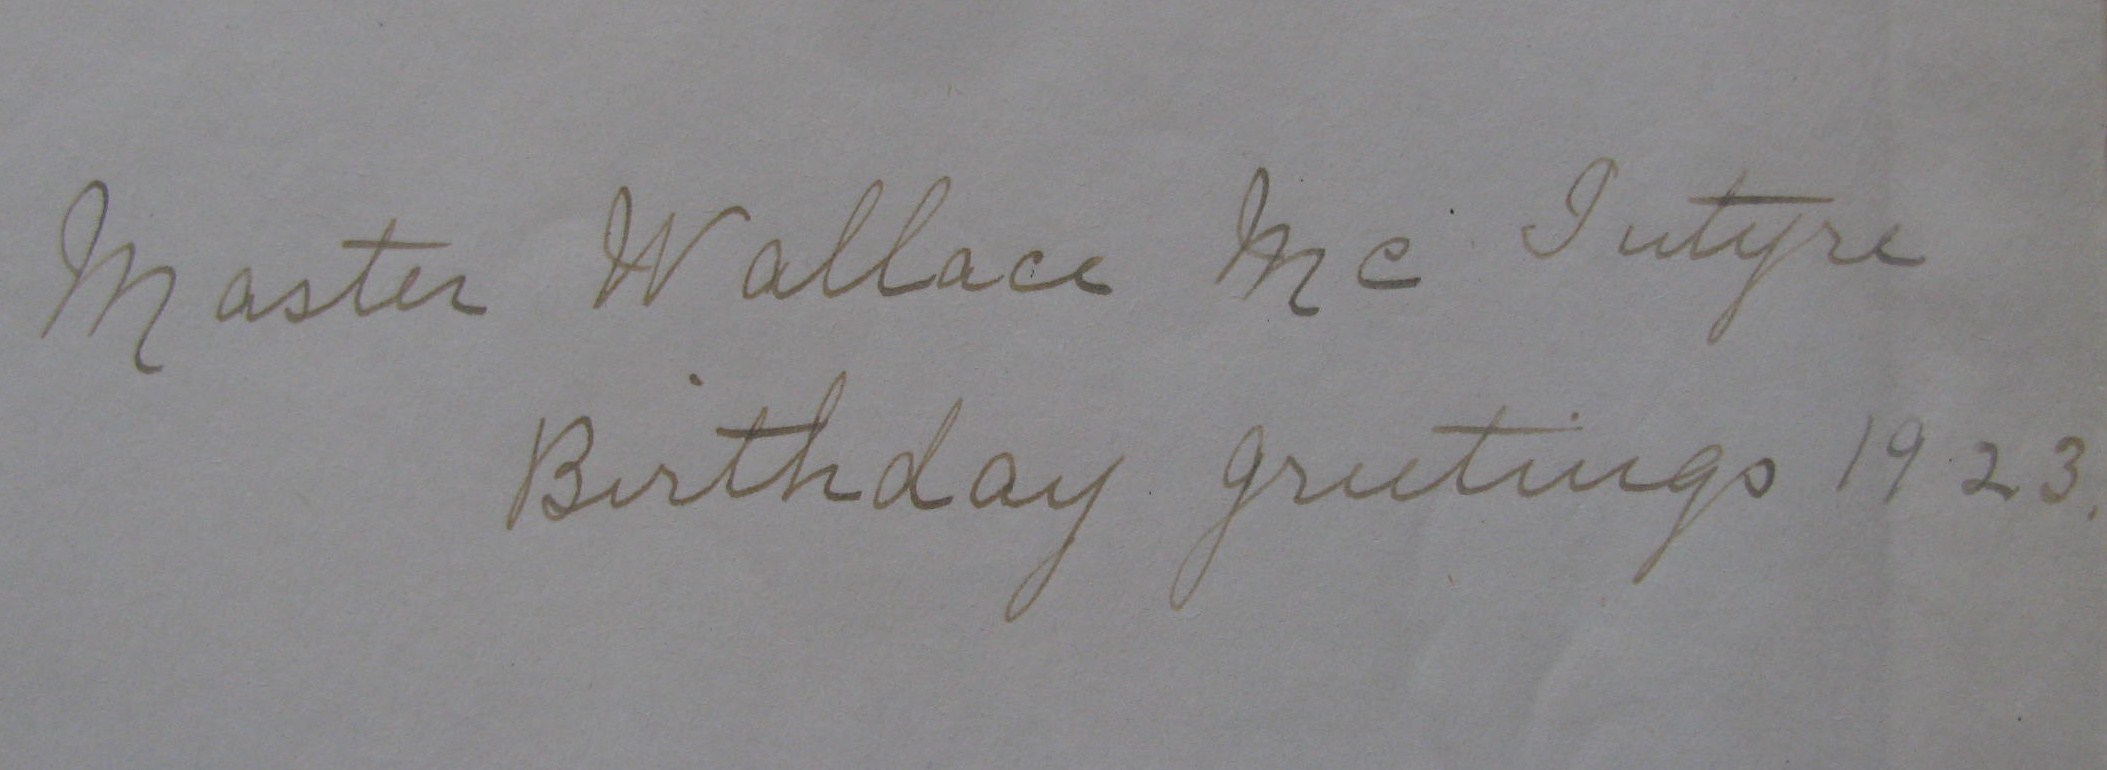 Master Wallace Mc Intyre
Birthday greetings 1923.